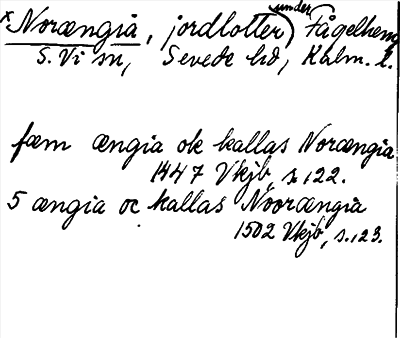 *Norængia, jordlotter under Fågelhem,
S. Vi sn, Sevede hd, Kalm. l.
fæm ængia ok kallas Norængia
1447 Vkjb, s. 122.
5 ængia oc kallas Noorængia
1502 Vkjb, s. 123.